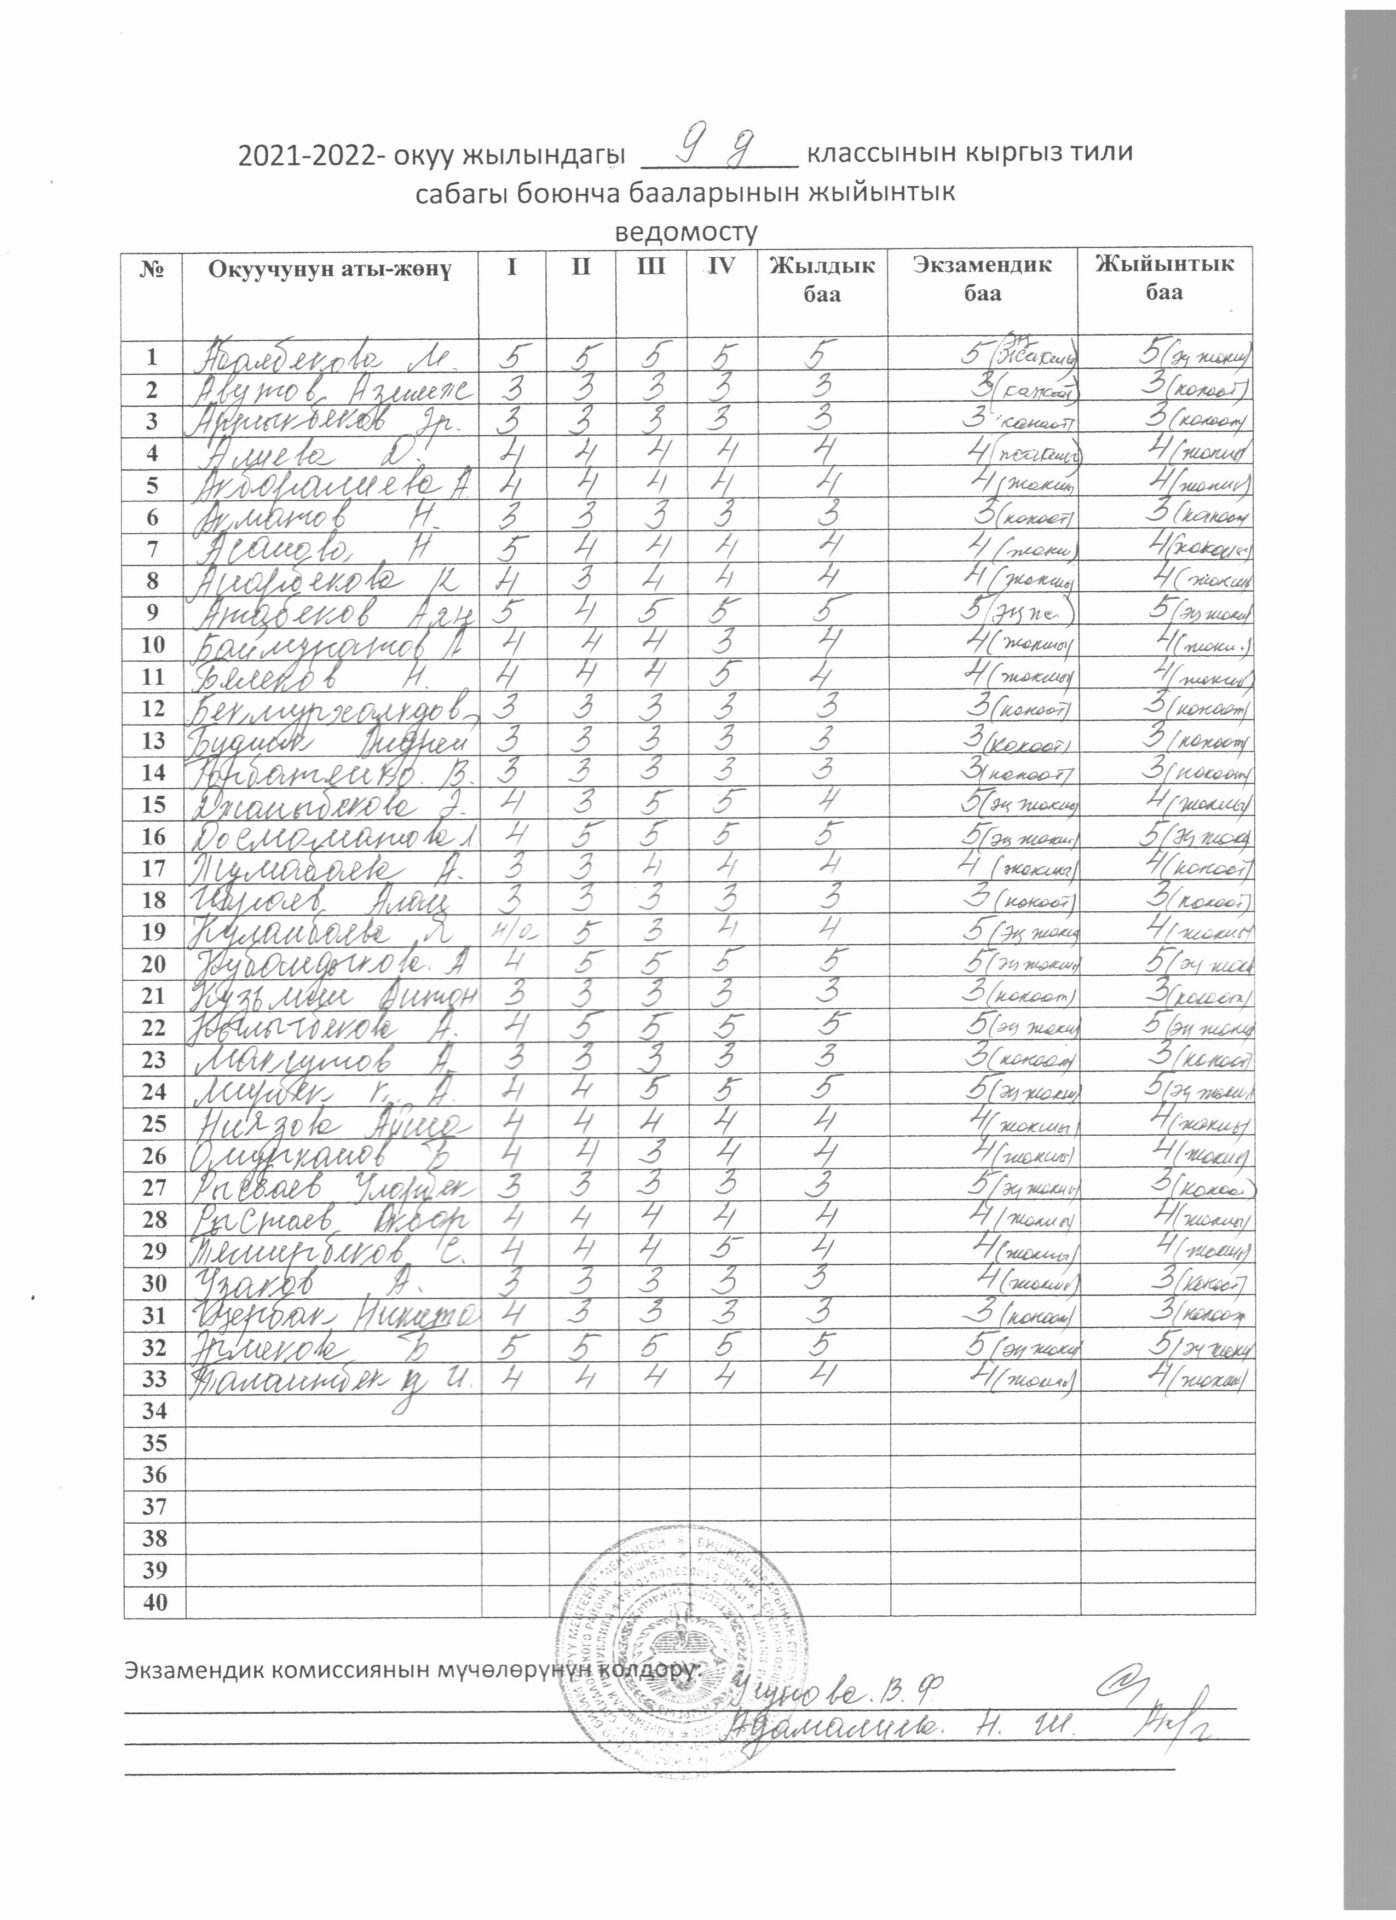 2021-2022- окуу жылындагы 9 д классынын кыргыз тили
сабагы боюнча бааларынын жыйынтык
ведомосту
№ Окуучунун аты-жөнү I II III IV Жылдык баа Экзамендик баа Жыйынтык баа
1 М. 5 5 5 5 5 5 5 (эң жакшы)
2 Авутов 3 3 3 3 3 3 3 (канаат)
3 Эр. 3 3 3 3 3 3 канаат 3 (канаат)
4 Алиева Д. 4 4 4 4 4 4 (жакшы) 4 (жакшы)
5 Акбаралиева А 4 4 4 4 4 4 (жакшы 4 (жакшы)
6 Акматов Н. 3 3 3 3 3 3 (канаат) 3 (канаат
7 Асанова Н 5 4 4 4 4 4 (жакш) 4
8 Анарбекова К 4 3 4 4 4 4 (жакшы) 4 (жакшы
9 Атабеков 5 4 5 5 5 5 (эң ж ) 5 (эң жакш
10 Баймуратов 4 4 4 3 4 4 (жакшы) 4 (жакш.)
11 Н. 4 4 4 5 4 4 (жакшы) 4 (жакшы)
12 3 3 3 3 3 3 (канаат) 3 (канаат)
13 Андрей 3 3 3 3 3 3 (канаат) 3 (канаат)
14 Горбатенко. В. 3 3 3 3 3 3 (канаат) 3 (канаат)
15 Джаныбекова Э. 4 3 5 5 4 5 (эң жакшы 4 (жакшы)
16 Досмаматова 4 5 5 5 5 5 (эң жакшы) 5 (эң жакш
17 Жумабаева А. 3 3 4 4 4 4 (жакшы) 4 (канаат)
18 3 3 3 3 3 3 (канаат) 3 (канаат)
19 Куланбаева Я н/а 5 3 4 4 5 (эң жакш 4 (жакшы)
20 Кубандыкова. А 4 5 5 5 5 5 (эң жакшы 5 (эң жакш
21 Кузьмин Антон 3 3 3 3 3 3 (канаат) 3 (канаат)
22 Кылычбекова А. 4 5 5 5 5 5 (эң жакш 5 (эң жакш
23 Максутов А. 3 3 3 3 3 3 (канаат) 3 (канаат
24 Мирбек к. А. 4 4 5 5 5 5 (эң жакшы) 5 (эң жакш.
25 Ниязова 4 4 4 4 4 4 (жакшы) 4 (жакшы)
26 Омурканов Б 4 4 3 4 4 4 (жакшы) 4 (жакшы)
27 Рысбаев Уларбек 3 3 3 3 3 5 (эң жакшы) 3 (канаат)
28 Рыстаев Акбар 4 4 4 4 4 4 (жакшы) 4 (жакшы)
29 Темирбеков С. 4 4 4 5 4 4 (жакшы) 4 (жакшы)
30 Узаков А. 3 3 3 3 3 4 (жакшы) 3 (канаат)
31 Щербак Никита 4 3 3 3 3 3 (канаат) 3 (канаат
32 Эрмекова Б 5 5 5 5 5 5 (эң жакшы 5 (эң жакшы
33 Талантбек к И. 4 4 4 4 4 4 (жакшы) 4 (жакшы)
34
35
36
37
38
39
40
Экзамендик комиссиянын мүчөлөрүнүн колдору:
В. Ф
Адамалиева. Н. Ш.